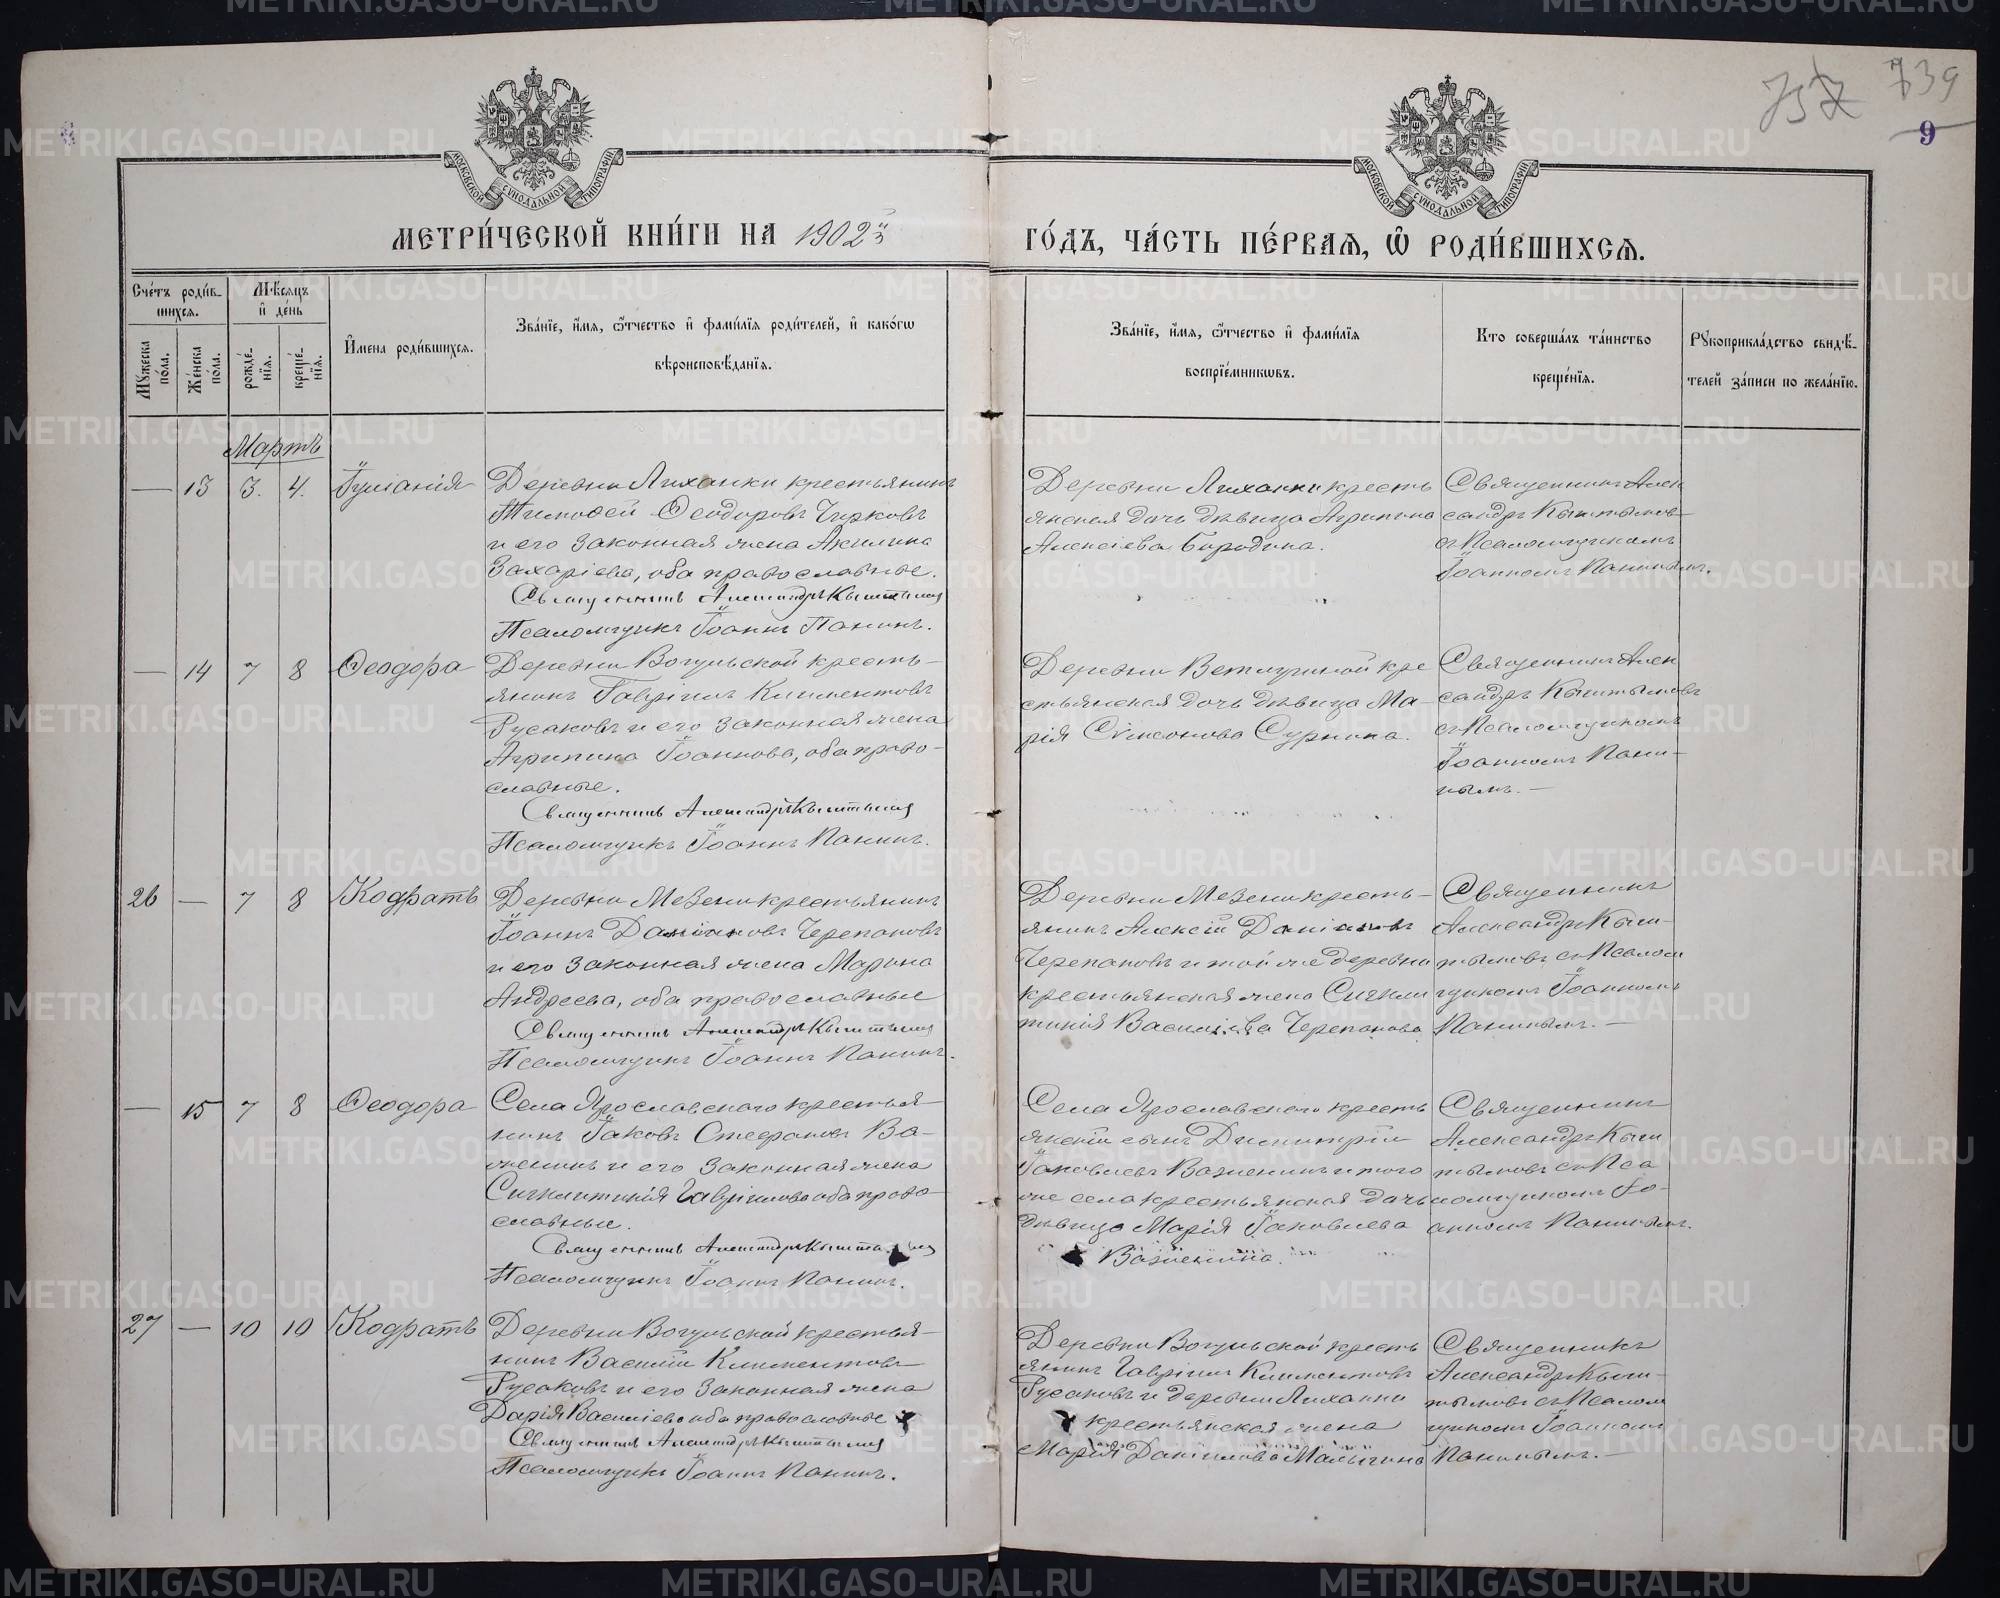 757 739
9
МОСКОВСКОЙ СѴНОДАЛЬНОЙ ТИПОГРАФІИ
МОСКОВСКОЙ СѴНОДАЛЬНОЙ ТИПОГРАФІИ
МЕТРИ́ЧЕСКОЙ КНИ́ГИ НА 1902й
ГО́ДЪ, ЧА́СТЬ ПЕ́РВАЯ, Ѡ РОДИ́ВШИХСѦ.
Сче́тъ роди́в-
шихсѧ.
Мꙋжеска по́ла.
Же́нска по́ла.
Мѣ́сѧцъ
и҆ де́нь
рожде́-
нїѧ.
креще́-
нїѧ.
И҆мена роди́вшихсѧ.
Зва́нїе, и҆́мѧ, ѻ҆́тчество и҆ фами́лїѧ роди́телей, и҆ како́гѡ
вѣроисповѣ́данїѧ.
Зва́нїе, и҆́мѧ, ѻ҆́тчество и҆ фами́лїѧ
воспрїе́мникѡвъ.
Кто соверша́лъ та́инство
креще́нїѧ.
Рꙋкоприкла́дство свидѣ́-
телей за́писи по жела́нїю.
Мартъ
— 13 3. 4. Іуліанія
Деревни Лиханки крестьянинъ
Тимофей Ѳеодоровъ Чирковъ
и его законная жена Акилина
Захаріева, оба православные.
Священникъ Александръ Кыштымовъ
Псаломщикъ Іоаннъ Панинъ.
Деревни Лиханки кресть
янская дочь дѣвица Агрипина
Алексіева Бородина.
Священникъ Алек
сандръ Кыштымов
съ Псаломщикомъ
Іоанномъ Панинымъ.
— 14 7 8 Ѳеодора
Деревни Вогульской кресть-
янинъ Гавріилъ Климентовъ
Русаковъ и его законная жена
Агрипина Іоаннова, оба право-
славные.
Священникъ Александръ Кыштымовъ
Псаломщикъ Іоаннъ Панинъ.
Деревни кре
стьянская дочь дѣвица Ма-
рія Сѵмеонова Сурнина.
Священникъ Алек
сандръ Кыштымовъ
съ Псаломщикомъ
Іоанномъ Пани-
нымъ. —
26 — 7 8 Кодратъ
Деревни Мезени крестьянинъ
Іоаннъ Даніиловъ Черепановъ
и его законная жена Марина
Андреева, оба православные
Священникъ Александръ Кыштымовъ
Псаломщикъ Іоаннъ Панинъ.
Деревни Мезени кресть-
янинъ Алексій Даніиловъ
Черепановъ и той же деревни
крестьянская жена Сигкли
тикія Василіева Черепанова
Священникъ
Александръ Кыш-
тымовъ съ Псалом
щикомъ Іоанномъ
Панинымъ. —
— 15 7 8 Ѳеодора
Села Ярославскаго крестья-
нинъ Іаковъ Стефановъ Ва-
женинъ и его законная жена
Сигклитикія Гавріилова оба право-
славные.
Священникъ Александръ Кыштымовъ
Псаломщикъ Іоаннъ Панинъ.
Села Ярославскаго кресть
янскій сынъ Димитрій
Іаковлевъ Важенинъ и того
же села крестьянская дочь
дѣвица Марія Іаковлева
Важенина.
Священникъ
Александръ Кыш
тымовъ съ Пса
ломщикомъ Іо-
анномъ Панинымъ.
27 — 10 10 Кодратъ
Деревни Вогульской крестья-
нинъ Василій Климентовъ
Русаковъ и его законная жена
Дарія Василіева оба православные
Священникъ Александръ Кыштымовъ
Псаломщикъ Іоаннъ Панинъ.
Деревни Вогульской кресть
янинъ Гавріилъ Климентовъ
Русаковъ и деревни Лиханки
крестьянская жена
Марія Даніилова Малыгина
Священникъ
Александръ Кыш-
тымовъ съ Псалом
щикомъ Іоанномъ
Панинымъ. —
METRIKI.GASO-URAL.RU